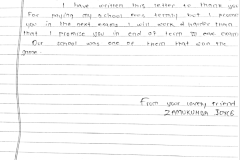 I have written this letter to thank you
For paying my school fees termly but I promise
you in the next exams I will work harder than
that I promise you in end of term III exam
Our school was one of them that won the
game.
From your lovely friend
ZAMUKUNDA JOYCE